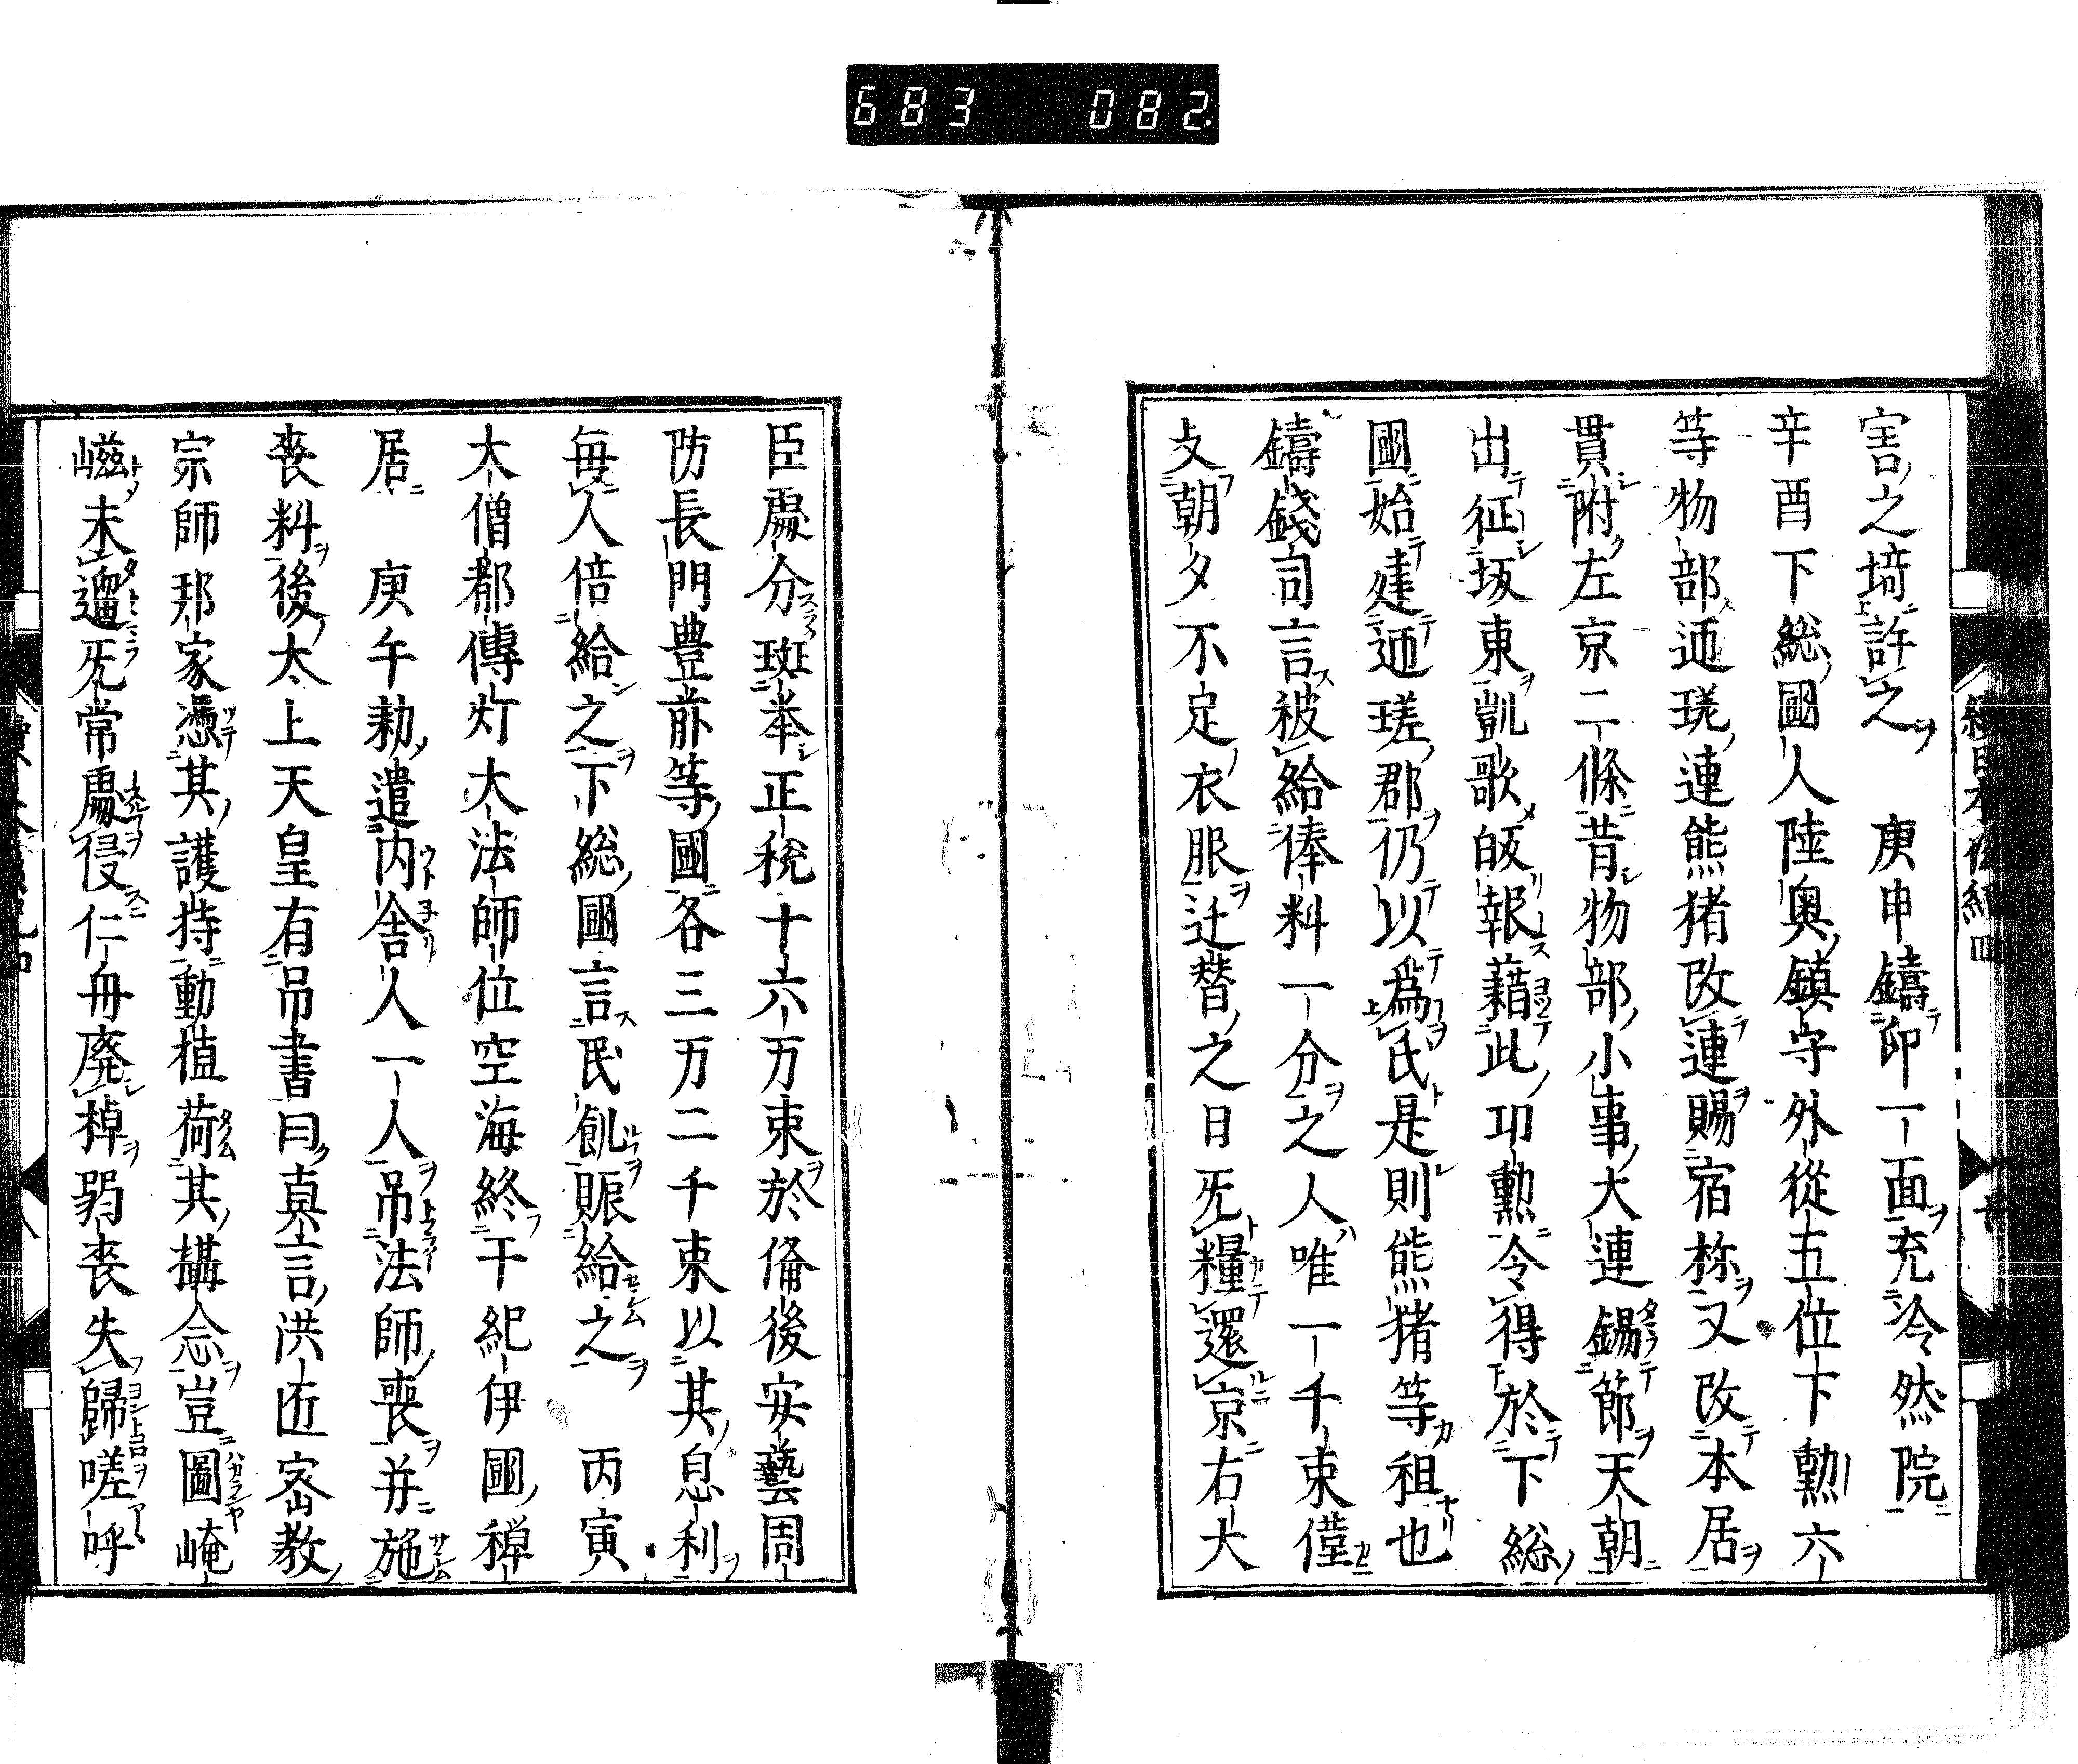 683 082
害之埼許之　庚申鑄印一面充冷然院
辛酉下総國人陸奥鎮守外從五位下勲六
等物部迊瑳連熊猪改連賜宿祢又改本居
貫附左京二條昔物部小事大連錫節天朝
出征坂東凱歌皈報藉此㓛勲令得於下総
國始建迊瑳郡仍以爲氏是則熊猪等祖也
鑄錢司言被給俸料一分之人唯一千束僅
支朝夕不足衣服迁替之日旡糧還京右大
臣處分班挙正税十六万束於俻後安藝周
防長門豊前等國各三万二千束以其息利
毎人倍給之下総國言民飢賑給之　丙寅
大僧都傳灯大法師位空海終于紀伊國禅
居　庚午勅遣内舎人一人吊法師喪并施
喪料後太上天皇有吊書曰真言洪匠密教
宗師邦家憑其護持動植荷其攝念豈圖崦
嵫未遒旡常遽侵仁舟廃棹弱喪失歸嗟呼